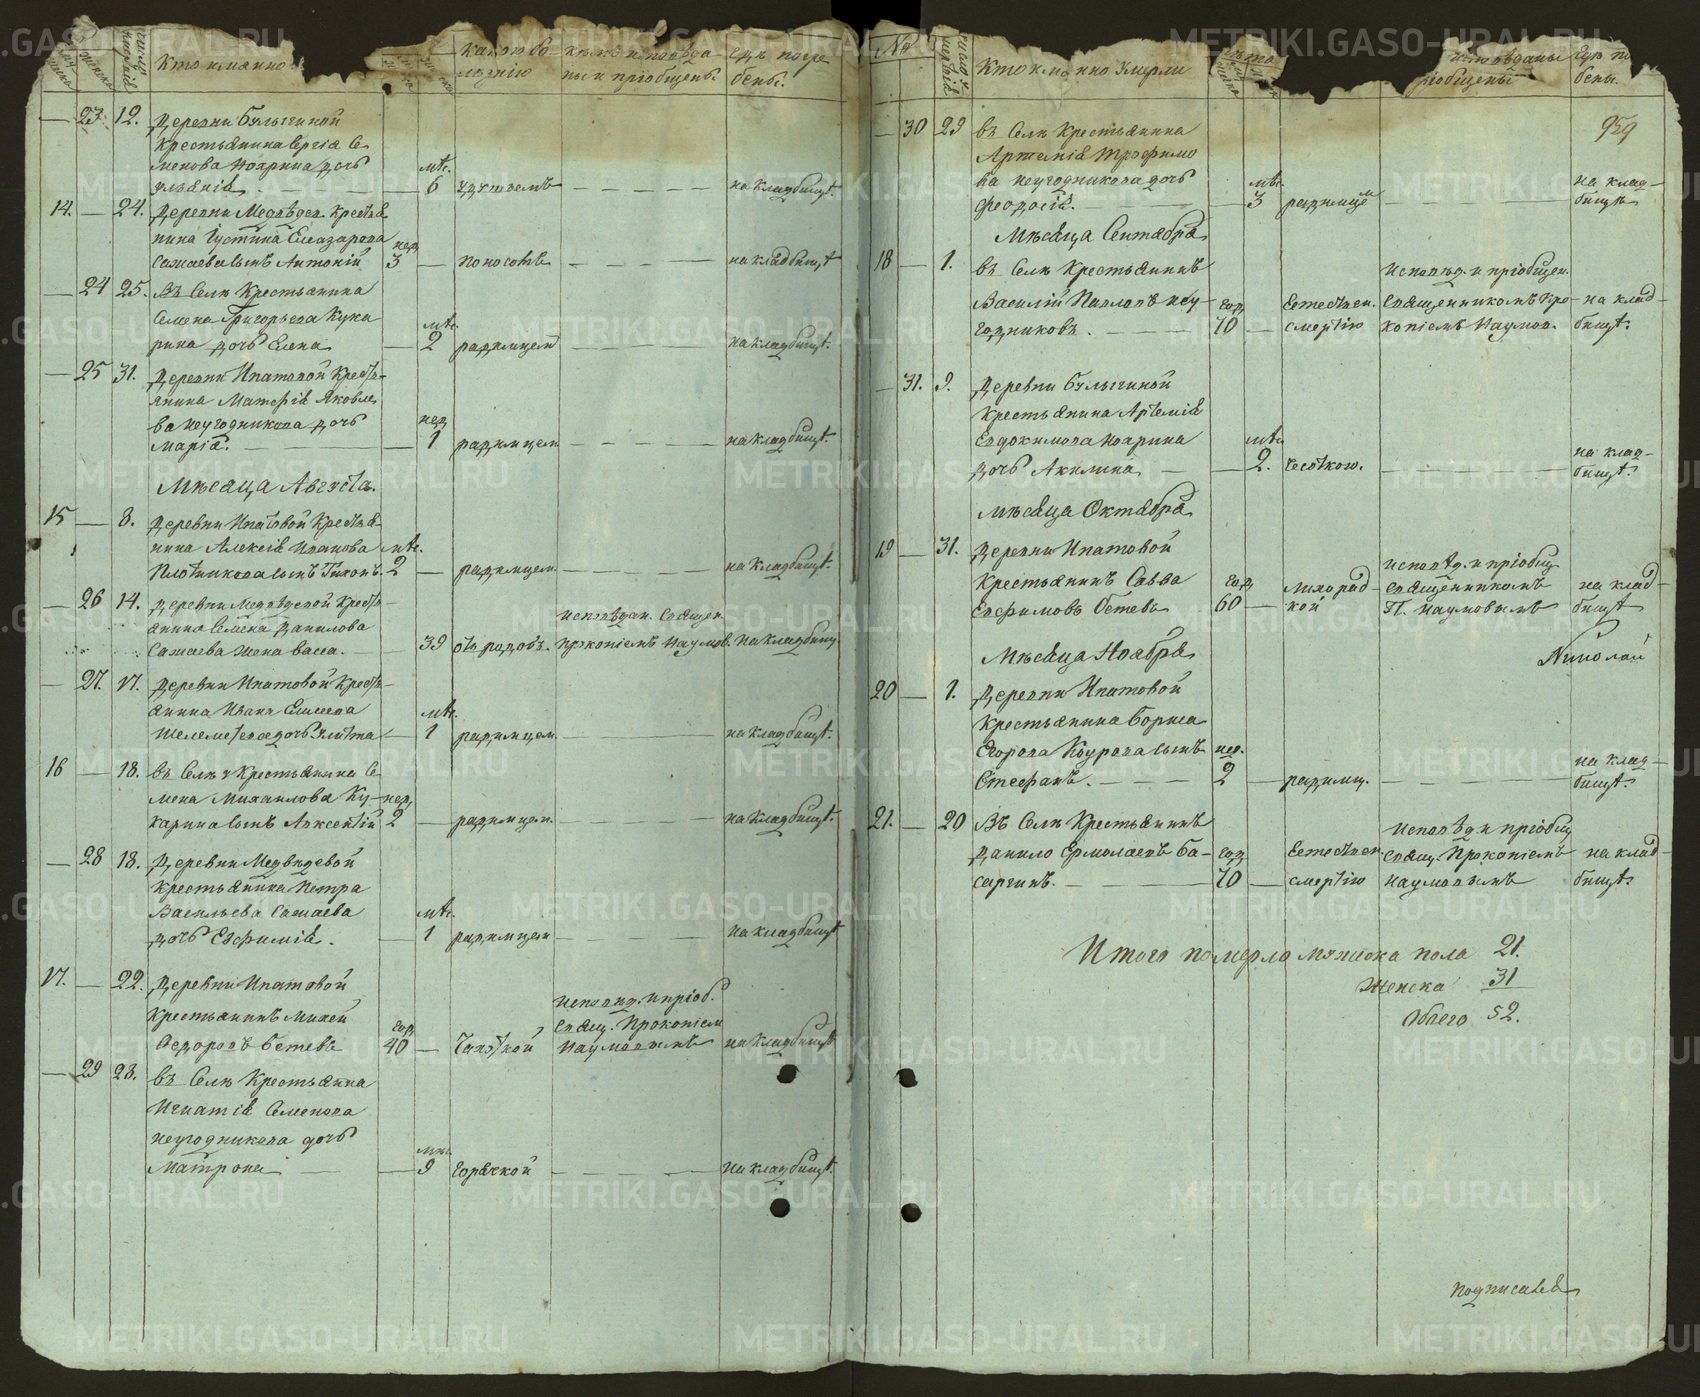 Кто имянно
Какою бо-
лѣзнію
кѣмъ исповѣда
ны и пріобщены.
гдѣ погре
бены.
— 23 12. Деревни Булыгиной
Крестьянина Сергія Се
менова дочь
— мѣс. 6 на кладбищѣ.
14. — 24. Деревни Медвѣдев. Крестья
нина Іустина Елеазарова
Сажаева сынъ Антоній нед. 3 — поносомъ — на кладбищѣ
— 24 25. Въ Селѣ Крестьянина
Семена Григорьева Кука
рина дочь Елена — мѣс. 2 родимцемъ — на кладбищѣ.
— 25 31. Деревни Ипатовой Кресть-
янина Матфія Яковле
ва Неугодникова дочь
Марія. — нед. 1 родимцем — на кладбищѣ.
Мѣсяца Августа.
15 — 8. Деревни Ипатовой Крестья-
нина Алексія Иванова
Плотникова сынъ Тихонъ. мѣс. 2 — родимцем. — на кладбищѣ.
— 26 14. Деревни Медвѣдевой Кресть-
янина Семена Данилова
Сажаева жена Васса. — 39 отъ родовъ. исповѣдан. Священ.
Прокопіемъ Наумов. на кладбищ.
— 27. 17. Деревни Ипатовой Кресть-
янина Ивана Елисеева
Шелеметева дочь Улита — мѣс. 1 родимцем. — на кладбищѣ.
16 — 18. Въ Селѣ Крестьянина Се
мена Михаилова Ку-
карина сынъ Авксентій нед. 2 — родимцем. — на кладбищѣ.
— 28 18. Деревни Медвѣдевой
Крестьянина Петра
Васильева Сажаева
дочь Евфимія. — мѣс. 1 родимцем — на кладбищѣ
17. — 22. Деревни Ипатовой
Крестьянинъ Михей
Федоровъ Бетевъ год. 40 — Чахоткой исповѣд. и пріоб.
Свящ. Прокопіем
Наумовымъ на кладбищѣ
— 29 28. въ Селѣ Крестьянина
Игнатія Семенова
Неугодникова дочь
Матрона — мѣс. 9 горячкой — на кладбищѣ.
№
Кто имянно Умерли
исповѣданы
пріобщены
гдѣ по
бены.
959
— 30 29 въ Селѣ Крестьянина
Артемія Трофимо
ва Неугодникова дочь
Феодосія. — мѣс. 3 родимце — на клад-
бищѣ
Мѣсяца Сентября
18 — 1. въ Селѣ Крестьянинъ
Василій Павловъ Неу-
годниковъ. — год. 70 — Естествен.
смертію Исповѣд. и пріобщен.
Священникомъ Про-
копіемъ Наумов. на клад-
бищѣ.
— 31. 9. Деревни Булыгиной
Крестьянина Артемія
Евдокимова
дочь Акилина — мѣс. 2. — на клад-
бищѣ.
Мѣсяца Октября
19 — 31. Деревни Ипатовой
Крестьянинъ Савва
Евфимовъ Бетевъ год. 60 — лихорад-
кой исповѣд. и пріобщ.
Священникомъ
П. Наумовымъ на клад-
бищѣ
Николай
Мѣсяца Ноября
20 — 1. Деревни Ипатовой
Крестьянина Бориса
Егорова сынъ
Стефанъ. — нед. 2 — родимц. — на клад-
бищѣ.
21. — 20 Въ Селѣ Крестьянинъ
Данило Ермолаевъ Ба-
саргинъ. — год. 70 — Естествен.
смертію исповѣд. и пріобщ.
Свящ. Прокопіемъ
Наумовымъ на клад-
бищѣ.
Итого померло мужеска пола 21.
Женска 31
Обоего 52.
Подписался
METRIKI.GASO-URAL.RU